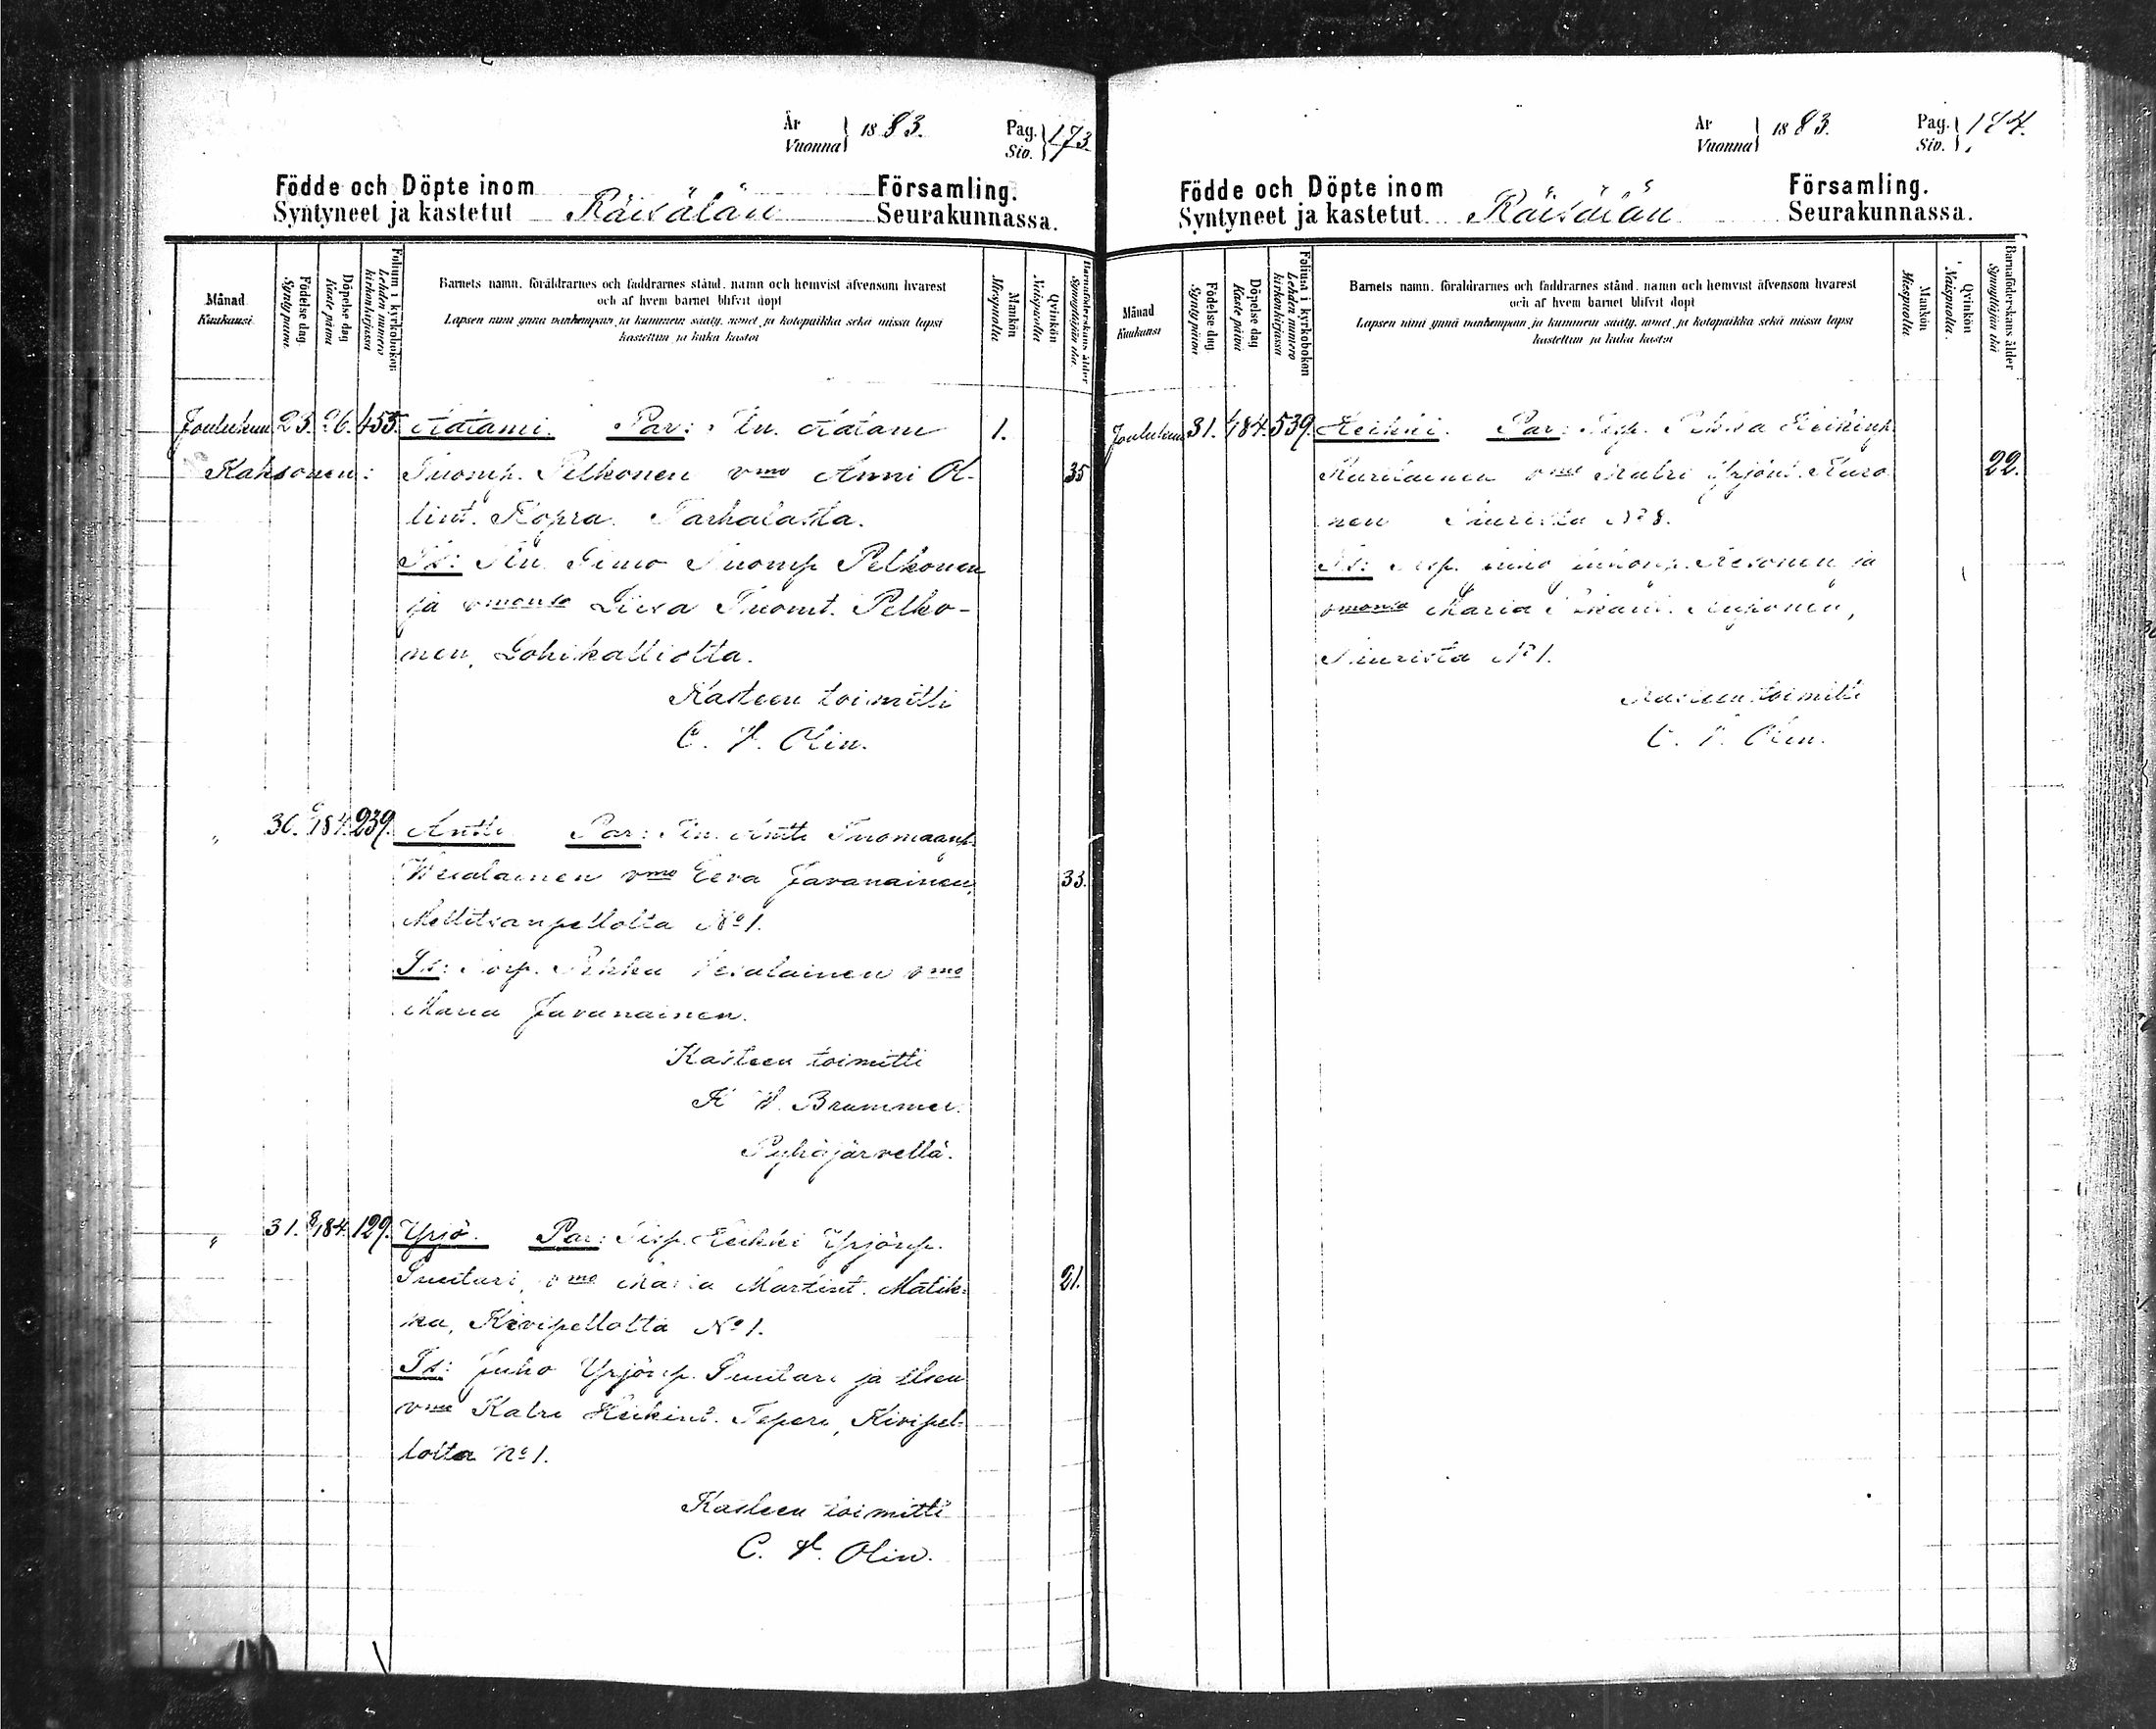 År
Vuonna 1883.
Pag.
Siv. 173.
Födde och Döpte inom Församling.
Syntyneet ja kastetut Räisälän Seurakunnassa.
Månad
Kuukausi
Födelse dag.
Synty päivä.
Döpelse dag
Kaste päivä
Folium i kyrkoboken
Lehden numero kirkonkirjassa
Barnets namn, föräldrarnes och faddrarnes stånd, namn och hemvist äfvensom hvarest
och af hvem barnet blifvit döpt
Lapsen nimi ynnä vanhempain ja kummein sääty, nimet ja kotopaikka sekä missä lapsi
kastettiin ja kuka kastoi
Mankön
Miespuolia
Qvinkön
Naispuolia
Barnaföderskans ålder
Synnyttäjän ikä.
Joulukuu 23. 26. 455. Aatami. Par: Itn. Aatam 1.
Kaksonen: Tuomp. Pelkonen vmo Anni Ol- 35
lint. Kopra. Tarhalasta.
Ts: Itn. Simo Tuomp Pelkonen
ja vmonsa Liisa Tuomt. Pelko-
nen, Lohikalliolta.
Kasteen toimitti
C. V. Olin.
" 30. 6/1 84. 239. Antti Par: Itn. Antti Tuomaanp.
Weialainen vmo Eeva Javanainen, 33.
Mellitsanpellolta No 1.
Ts: Pekka vmo
Maria Javanainen.
Kasteen toimitti
K V. Brummer.
Pyhäjärvellä.
" 31. 8/1 84. 129. Yrjö. Par: Tisp. Heikki Yrjönp.
Suutari, vmo Maria Martint. Matik- 21.
ka, Kivipellolta No 1.
Ts: Juho Yrjönp. Suutari ja tksen
vmo Katri Heikint. Teperi, Kivipel-
lolta No 1.
Kasteen toimitti
C. V. Olin.
År
Vuonna 1883.
Pag.
Siv. 174.
Födde och Döpte inom Församling.
Syntyneet ja kastetut Räisälän Seurakunnassa.
Månad
Kuukausi
Födelse dag.
Synty päivä
Döpelse dag
Kaste päivä
Folium i kyrkoboken
Lehden numero kirkonkirjassa
Barnets namn, föräldrarnes och faddrarnes stånd, namn och hemvist äfvensom hvarest
och af hvem barnet blifvit döpt
Lapsen nimi ynnä vanhempain ja kummein sääty, nimet ja kotopaikka sekä missä lapsi
kastettiin ja kuka kastoi
Mankön
Miespuolia
Qvinkön
Naispuolia.
Barnaföderskans ålder
Synnyttäjän ikä
Joulukuu 31. 84. 539. Heikki. Par: Tisp. Pekka Heikinp.
vmo Katri Yrjönt. 22.
nen Siirista No 8.
Ts: ja
vmonsa Maria
Siirista No 1.
Kasteen toimitti
C. V. Olin.